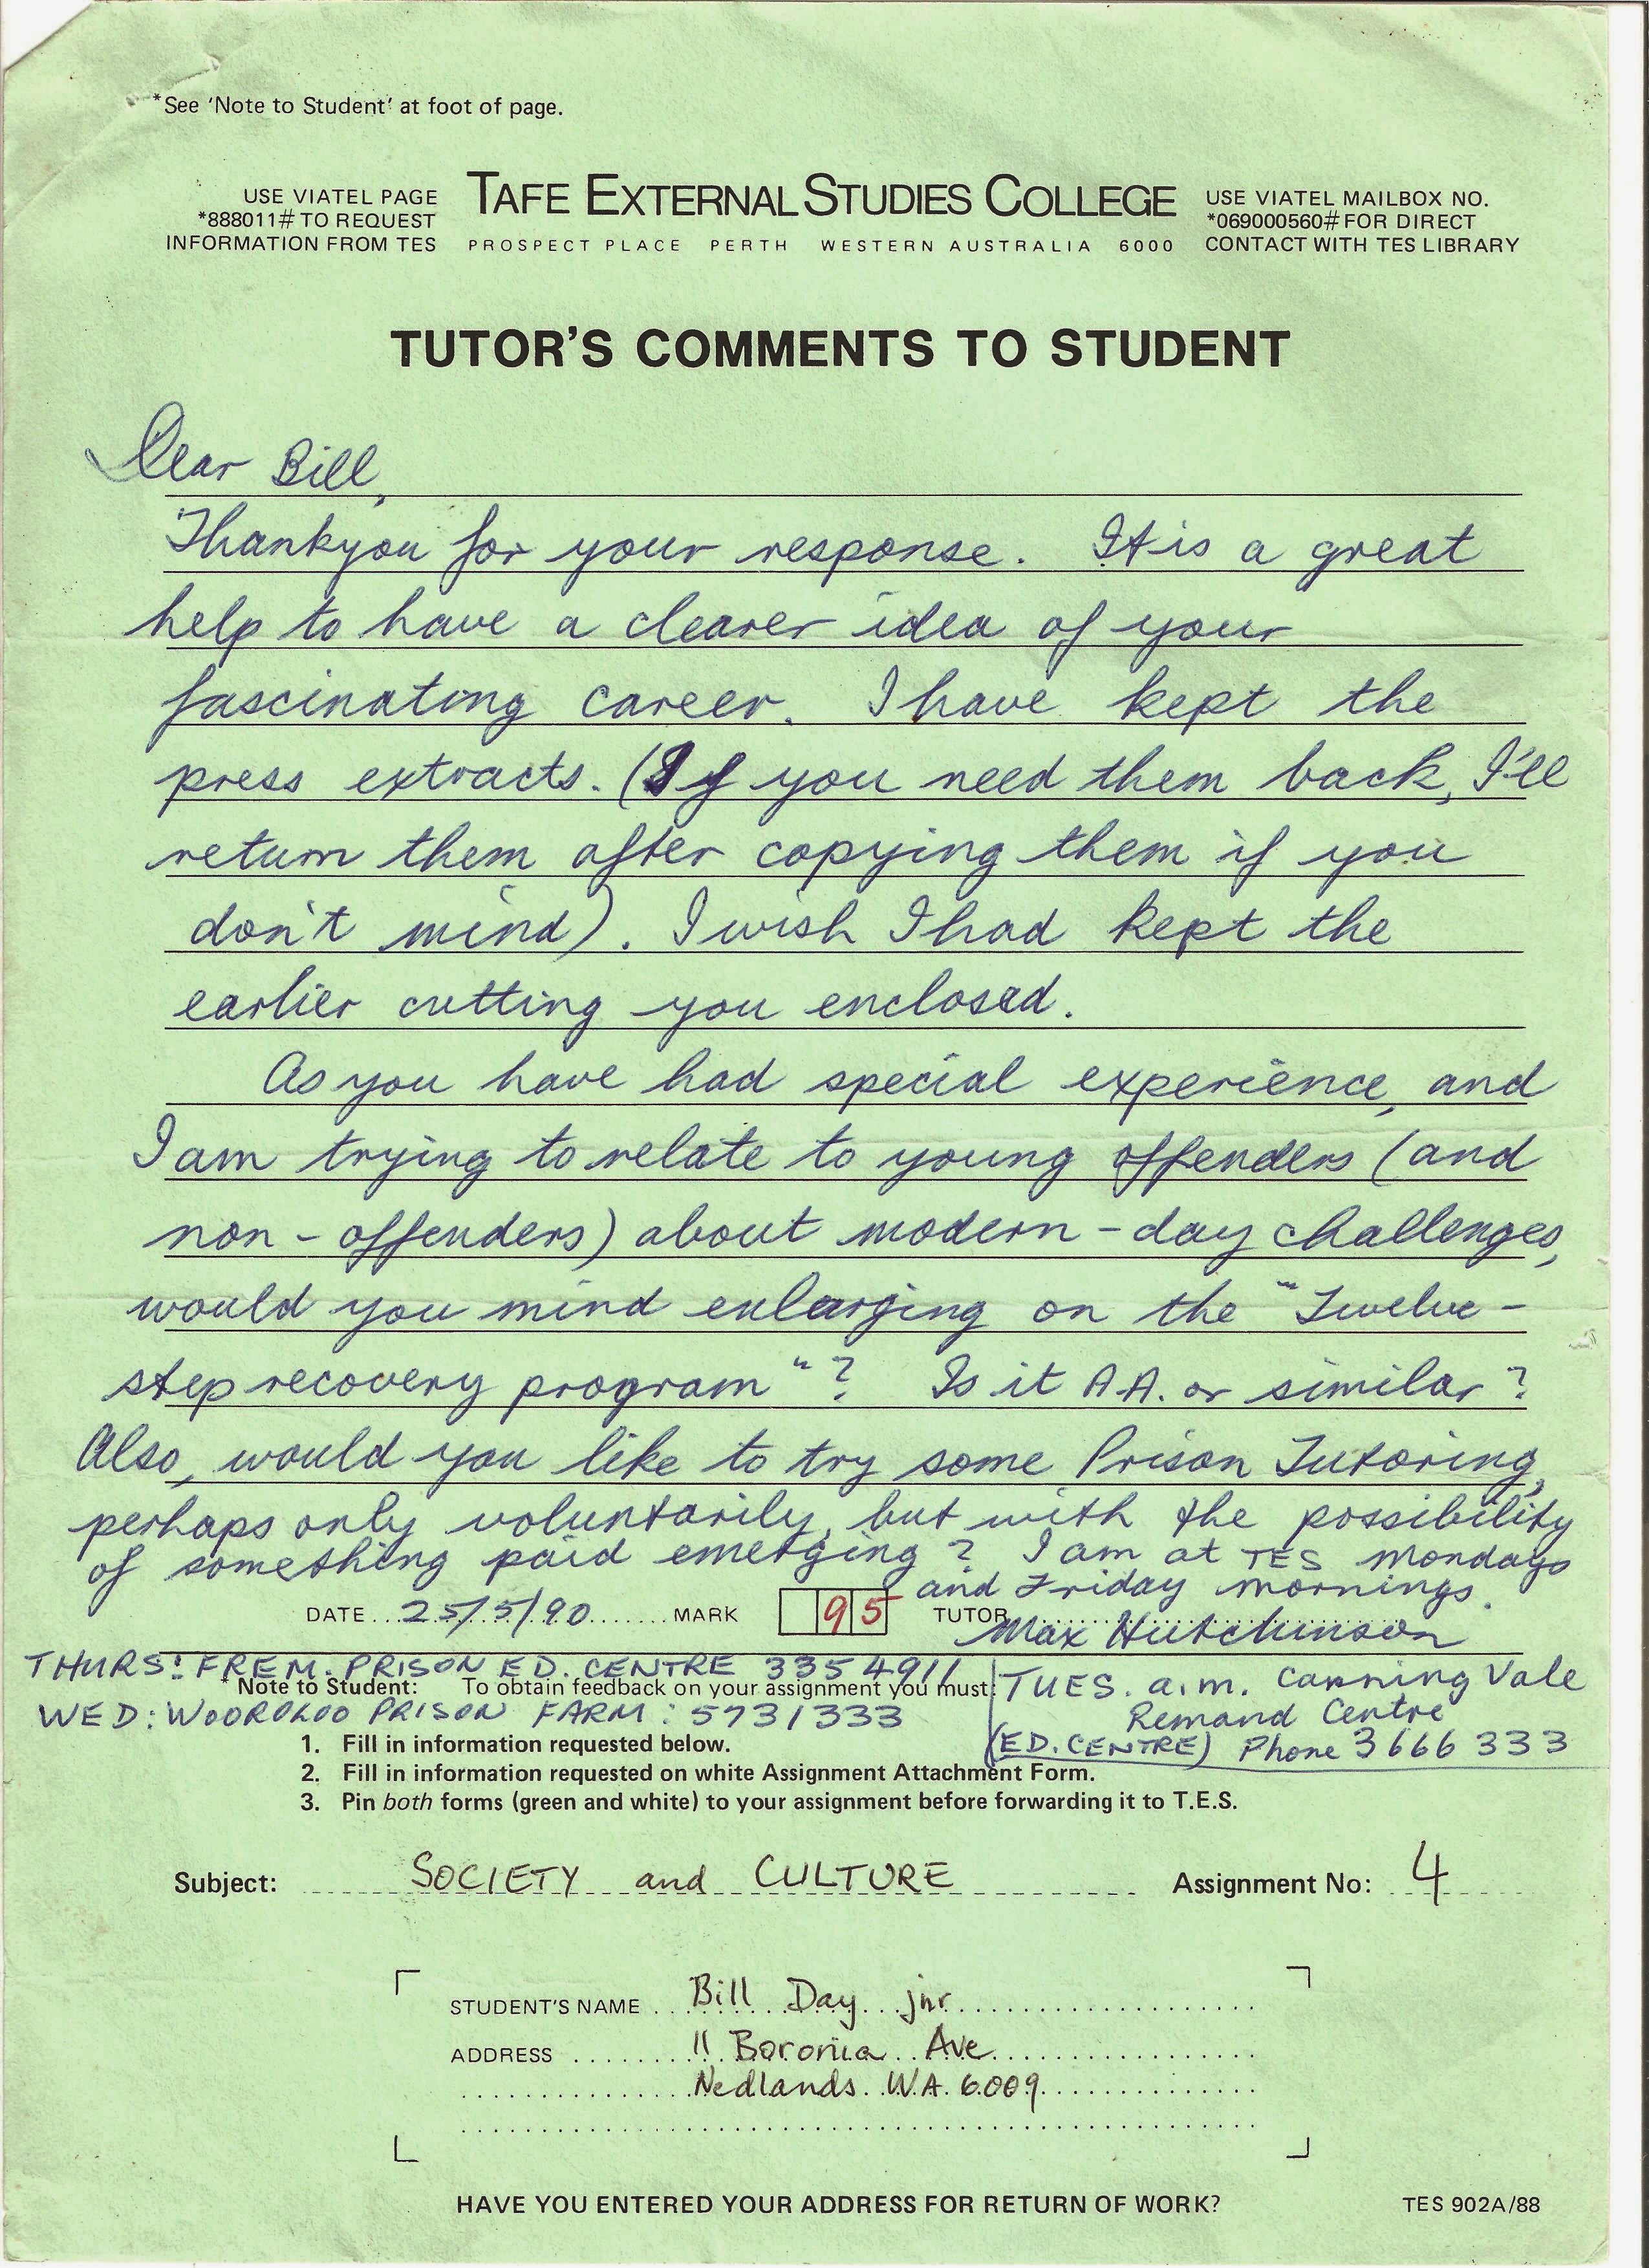 *See 'Note to Student' at foot of page.
USE VIATEL PAGE
*888011# TO REQUEST
INFORMATION FROM TES
TAFE EXTERNAL STUDIES COLLEGE
PROSPECT PLACE PERTH WESTERN AUSTRALIA 6000
USE VIATEL MAILBOX NO.
*069000560# FOR DIRECT
CONTACT WITH TES LIBRARY
TUTOR'S COMMENTS TO STUDENT
Dear Bill,
Thankyou for your response. It is a great
help to have a clearer idea of your
fascinating career. I have kept the
press extracts. (If you need them back, I'll
return them after copying them if you
don't mind). I wish I had kept the
earlier cutting you enclosed.
As you have had special experience, and
I am trying to relate to young offenders (and
non-offenders) about modern-day challenges,
would you mind enlarging on the "Twelve-
step recovery program"? Is it A.A. or similar?
Also, would you like to try some Prison Tutoring,
perhaps only voluntarily, but with the possibility
of something paid emerging? I am at TES Mondays
and Friday mornings.
DATE...25/5/90.......MARK 95 TUTOR Max Hutchinson
THURS: FREM. PRISON ED. CENTRE 335 4911
* Note to Student: To obtain feedback on your assignment you must:
WED: WOOROLOO PRISON FARM: 5731333
TUES. a.m. Canning Vale
Remand Centre
(ED. CENTRE) Phone 3666 333
1. Fill in information requested below.
2. Fill in information requested on white Assignment Attachment Form.
3. Pin both forms (green and white) to your assignment before forwarding it to T.E.S.
Subject: SOCIETY and CULTURE Assignment No: 4
STUDENT'S NAME Bill Day jnr
ADDRESS 11 Boronia Ave
Nedlands W.A. 6009
HAVE YOU ENTERED YOUR ADDRESS FOR RETURN OF WORK?
TES 902A/88